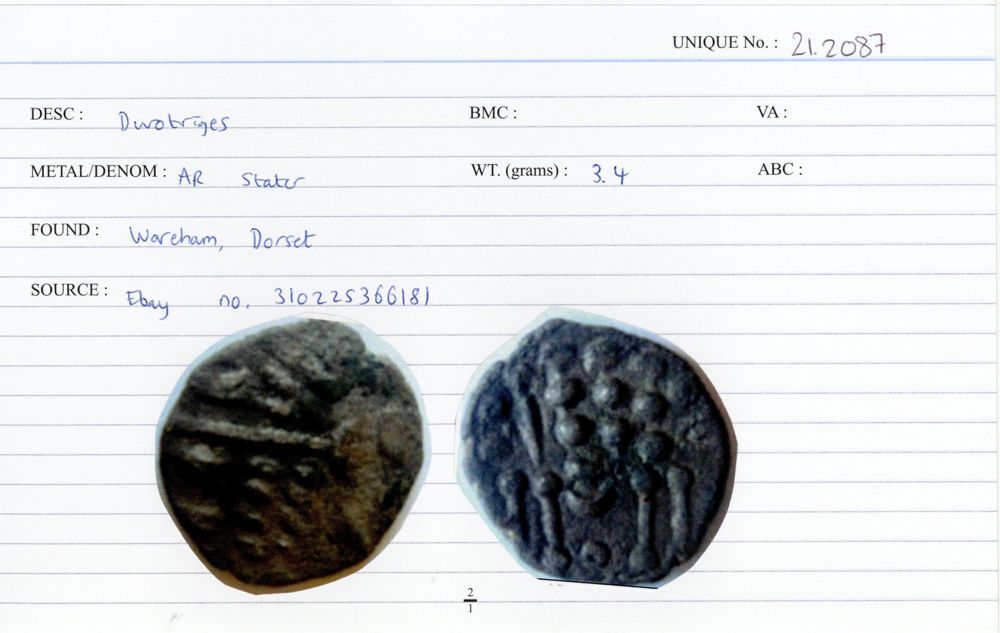 UNIQUE No. : 21.2087
DESC : Durotriges BMC : VA :
METAL/DENOM : AR Stater WT. (grams) : 3.4 ABC :
FOUND : Wareham, Dorset
SOURCE : Ebay no. 310225366181
2
1